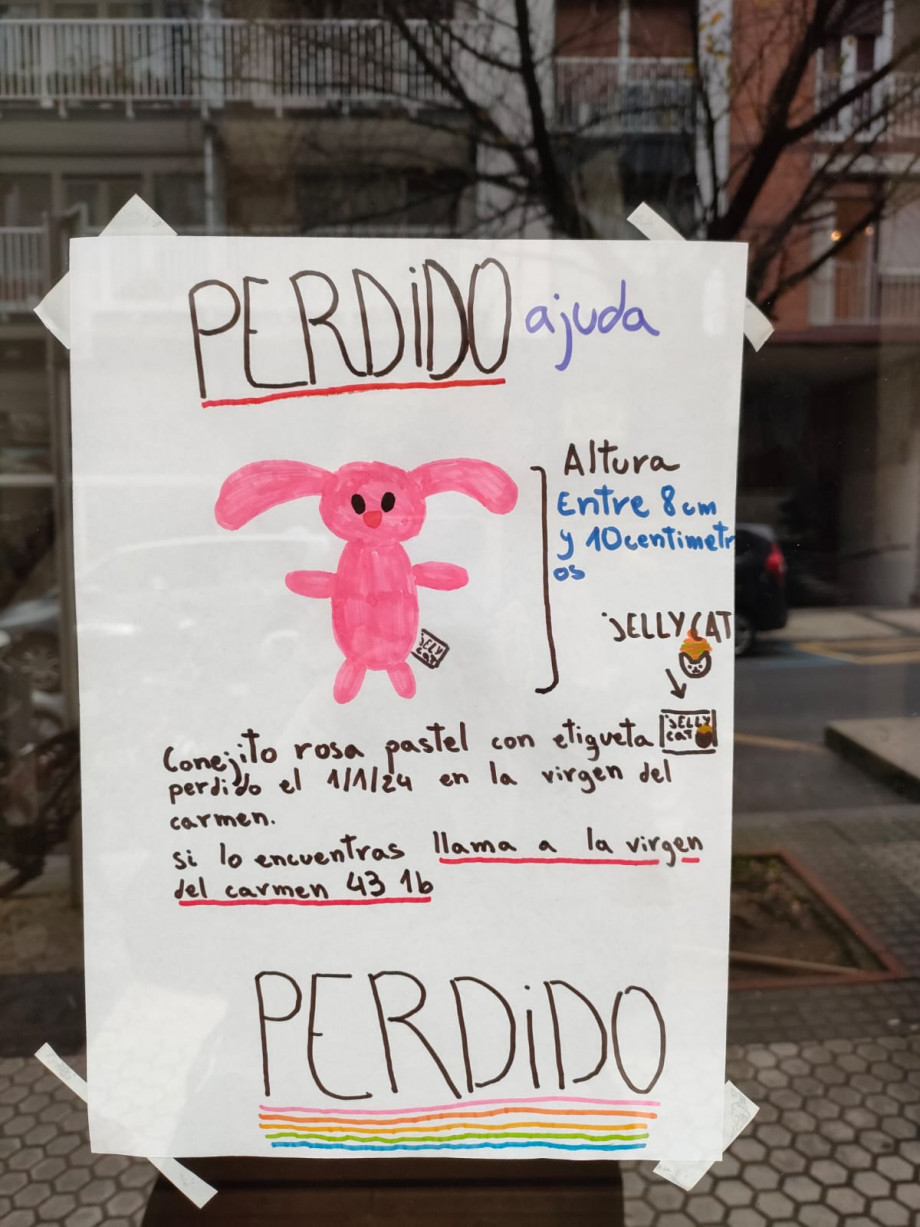 PERDiDO ajuda
Altura
Entre 8cm
y 10centimetr
os
JELLYCAT
JELLY
CAT
JELLY
CAT
Conejito rosa pastel con etiqueta
perdido el 1/1/24 en la virgen del
carmen.
si lo encuentras llama a la virgen
del carmen 43 1b
PERDiDO